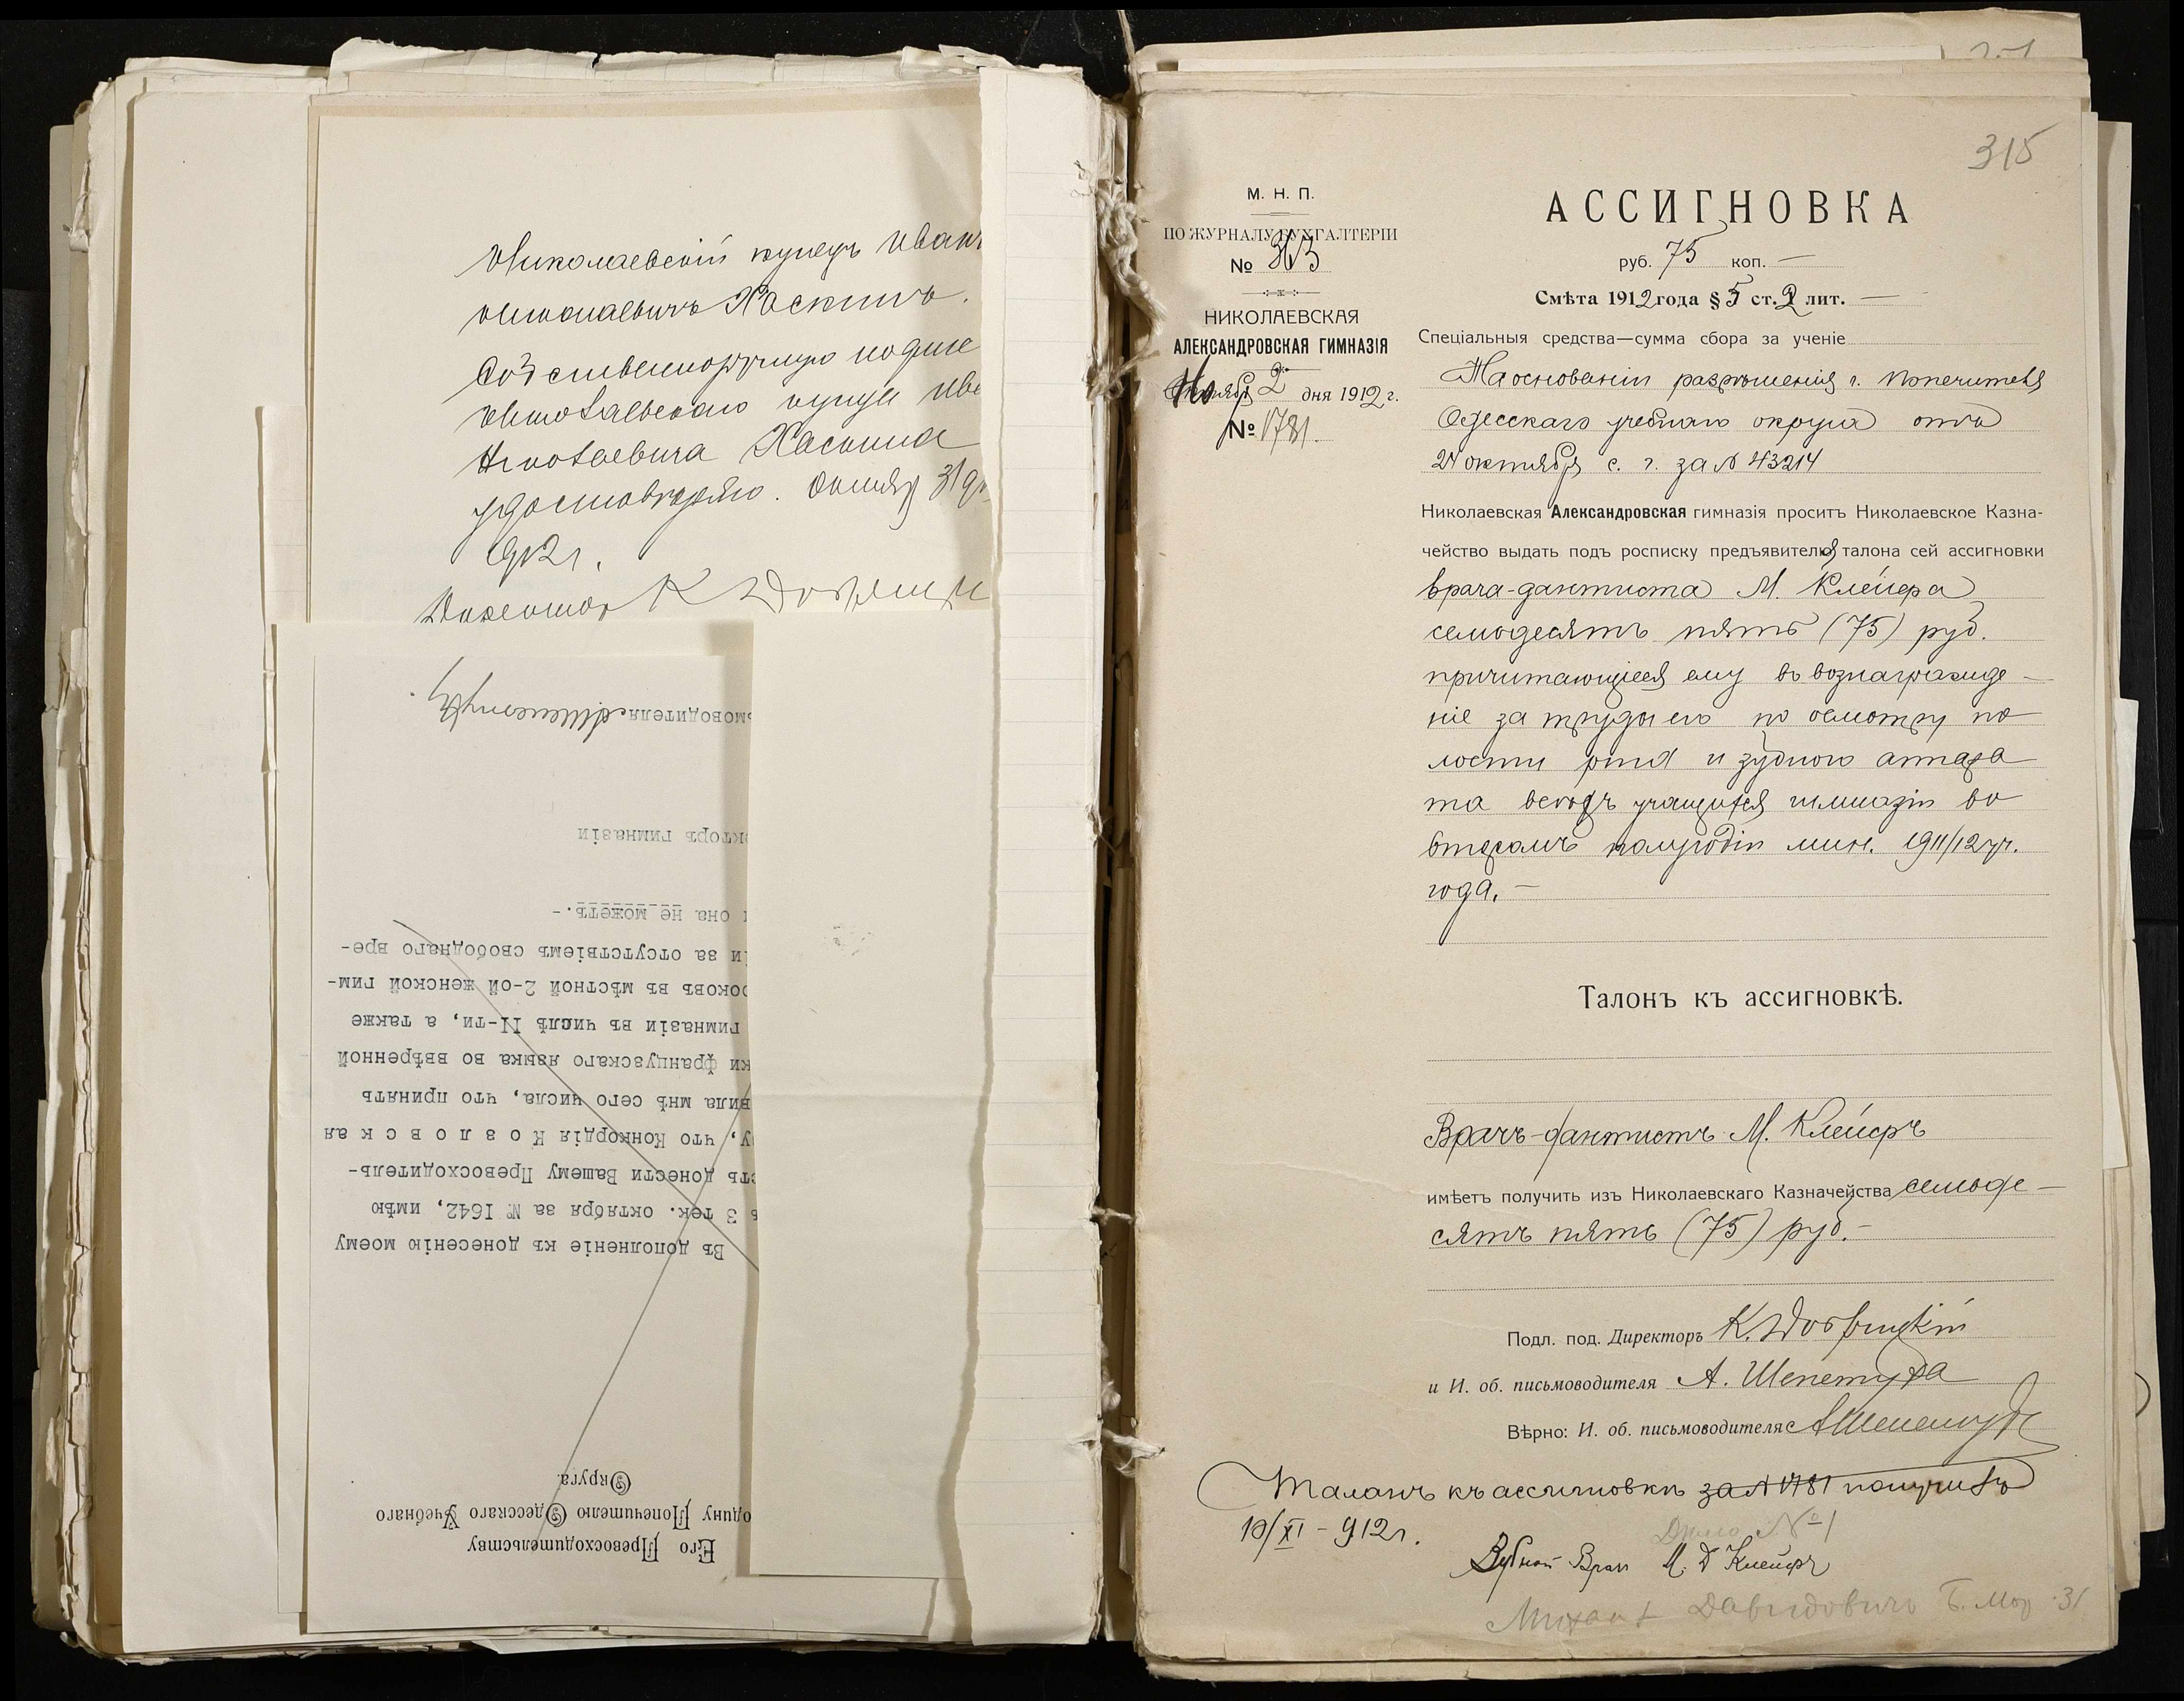 Николаевскій купецъ Иванъ
Николаевичъ Хаскинъ.
Собственноручную подпи
Николаевскаго купца Ива
Николаевича Хаскина
удостовѣряю. Октября 31 дн
1912 г.
Директоръ К Добр
ьмоводителя АШепетуха.
кторъ гимназіи
она не можетъ.-
іи за отсутствіемъ свободнаго вре-
роковъ въ мѣстной 2-ой женской гим-
гимназіи въ числѣ II-ти, а также
ки французскаго языка во ввѣренной
вила мнѣ сего числа, что принять
у, что Конкордія Козловская
сть донести Вашему Превосходитель-
ъ 3 тек. октября за № I642, имѣю
Въ дополненіе къ донесенію моему
Округа.
одину Попечителю Одесскаго Учебнаго
Его Превосходительству
315
М. Н. П.
ПО ЖУРНАЛУ БУХГАЛТЕРІИ
№ 363
НИКОЛАЕВСКАЯ
АЛЕКСАНДРОВСКАЯ ГИМНАЗІЯ
Ноября 2 дня 1912 г.
№ 1781.
АССИГНОВКА
руб. 75 коп. —
Смѣта 1912 года § 5 ст. 2 лит. —
Спеціальныя средства—сумма сбора за ученіе
На основаніи разрѣшенія г. Попечителя
Одесскаго учебнаго округа отъ
24 октября с. г. за № 43214
Николаевская Александровская гимназія проситъ Николаевское Казна-
чейство выдать подъ росписку предъявителя талона сей ассигновки
врача-дантиста М. Клейера
семьдесятъ пять (75) руб.
причитающіеся ему въ вознагражде-
ніе за труды его по осмотру по
лости рта и зубного аппара
та всѣхъ учащихся гимназіи во
второмъ полугодіи мин. 1911/12 уч.
года. —
Талонъ къ ассигновкѣ.
Врачъ-дантистъ М. Клейеръ
имѣетъ получить изъ Николаевскаго Казначейства семьде-
сятъ пять (75) руб.-
Подл. под. Директоръ К. Добровскій
и И. об. письмоводителя А. Шепетуха
Вѣрно: И. об. письмоводителя АШепетуха
Талонъ къ ассигновкѣ за № 1781 получилъ
10/XI - 912 г.
Дѣло № 1
Зубной Врач М. Д Клейеръ
Михаил Давидовичъ Б. Мор 31